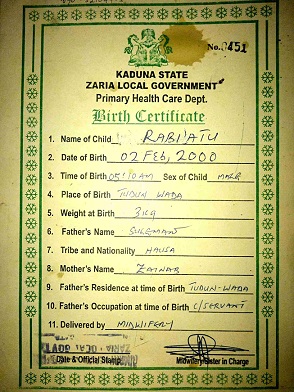 No. 3451
KADUNA STATE
ZARIA LOCAL GOVERNMENT
Primary Health Care Dept.
Birth Certificate
1. Name of Child RABI'ATU
2. Date of Birth 02 FEB, 2000
3. Time of Birth 05:10AM Sex of Child MALE
4. Place of Birth TUDUN WADA
5. Weight at Birth 3KG
6. Father's Name SULEMANU
7. Tribe and Nationality HAUSA
8. Mother's Name ZAINAB
9. Father's Residence at time of Birth TUDUN-WADA
10. Father's Occupation at time of Birth C/SERVANT
11. Delivered by MIDWIFERY
Date & Official Stamp
Midwifery Sister in Charge